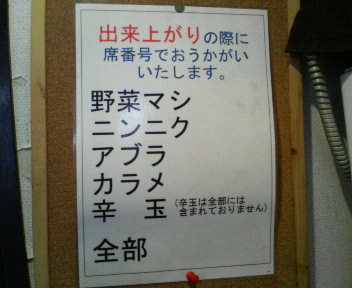 出来上がりの際に
席番号でおうかがい
いたします。
野菜マシ
ニンニク
アブラ
カラメ
辛　玉（辛玉は全部には
含まれておりません）
全部